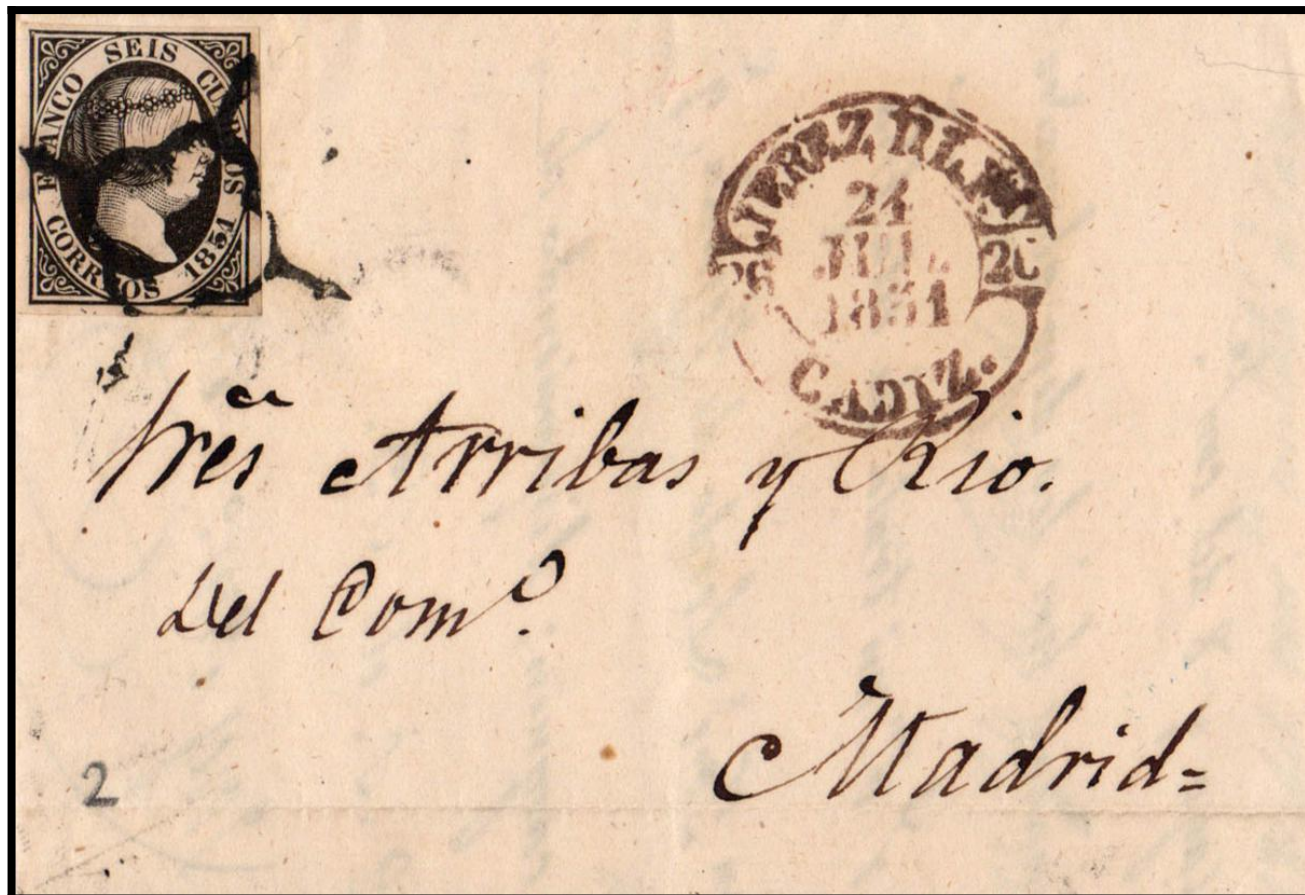 FRANCO SEIS CUARTOS
CORREOS 1851
JEREZ DE LA
24
JUL.
1851
26 26
CADIZ.
Sres Arribas y Rio.
Del Como.
Madrid=
2